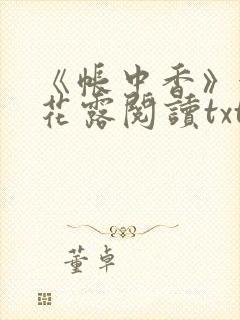 《帐中香》
花露閱讀txt
董卓